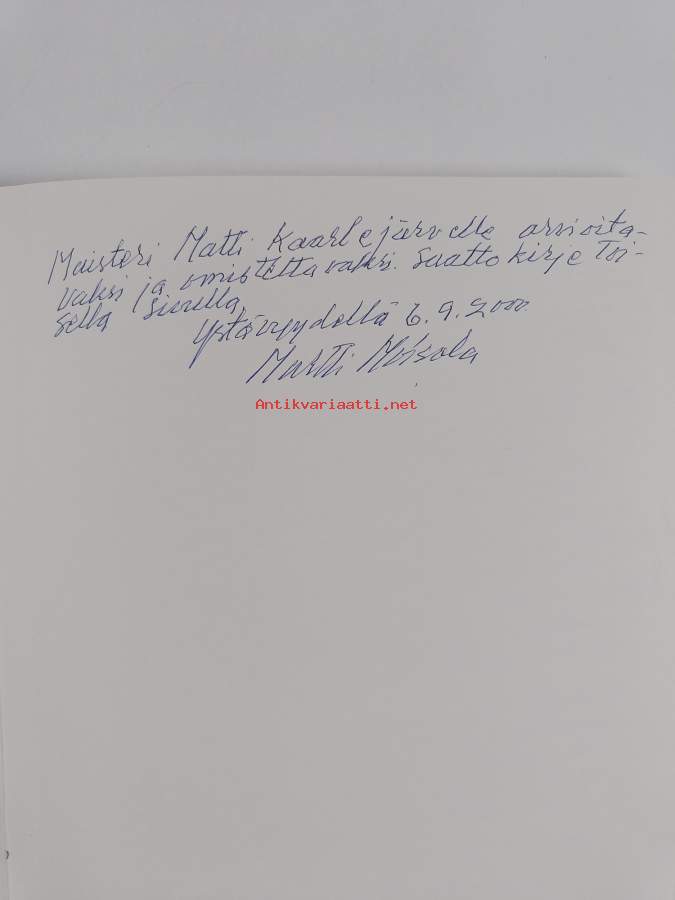 Maisteri Matti Kaarlejärvelle arvioita-
vaksi ja omistettavaksi. Saattokirje toi-
sella sivulla.
Ystävyydellä 6.9.2000
Martti
Antikvariaatti.net